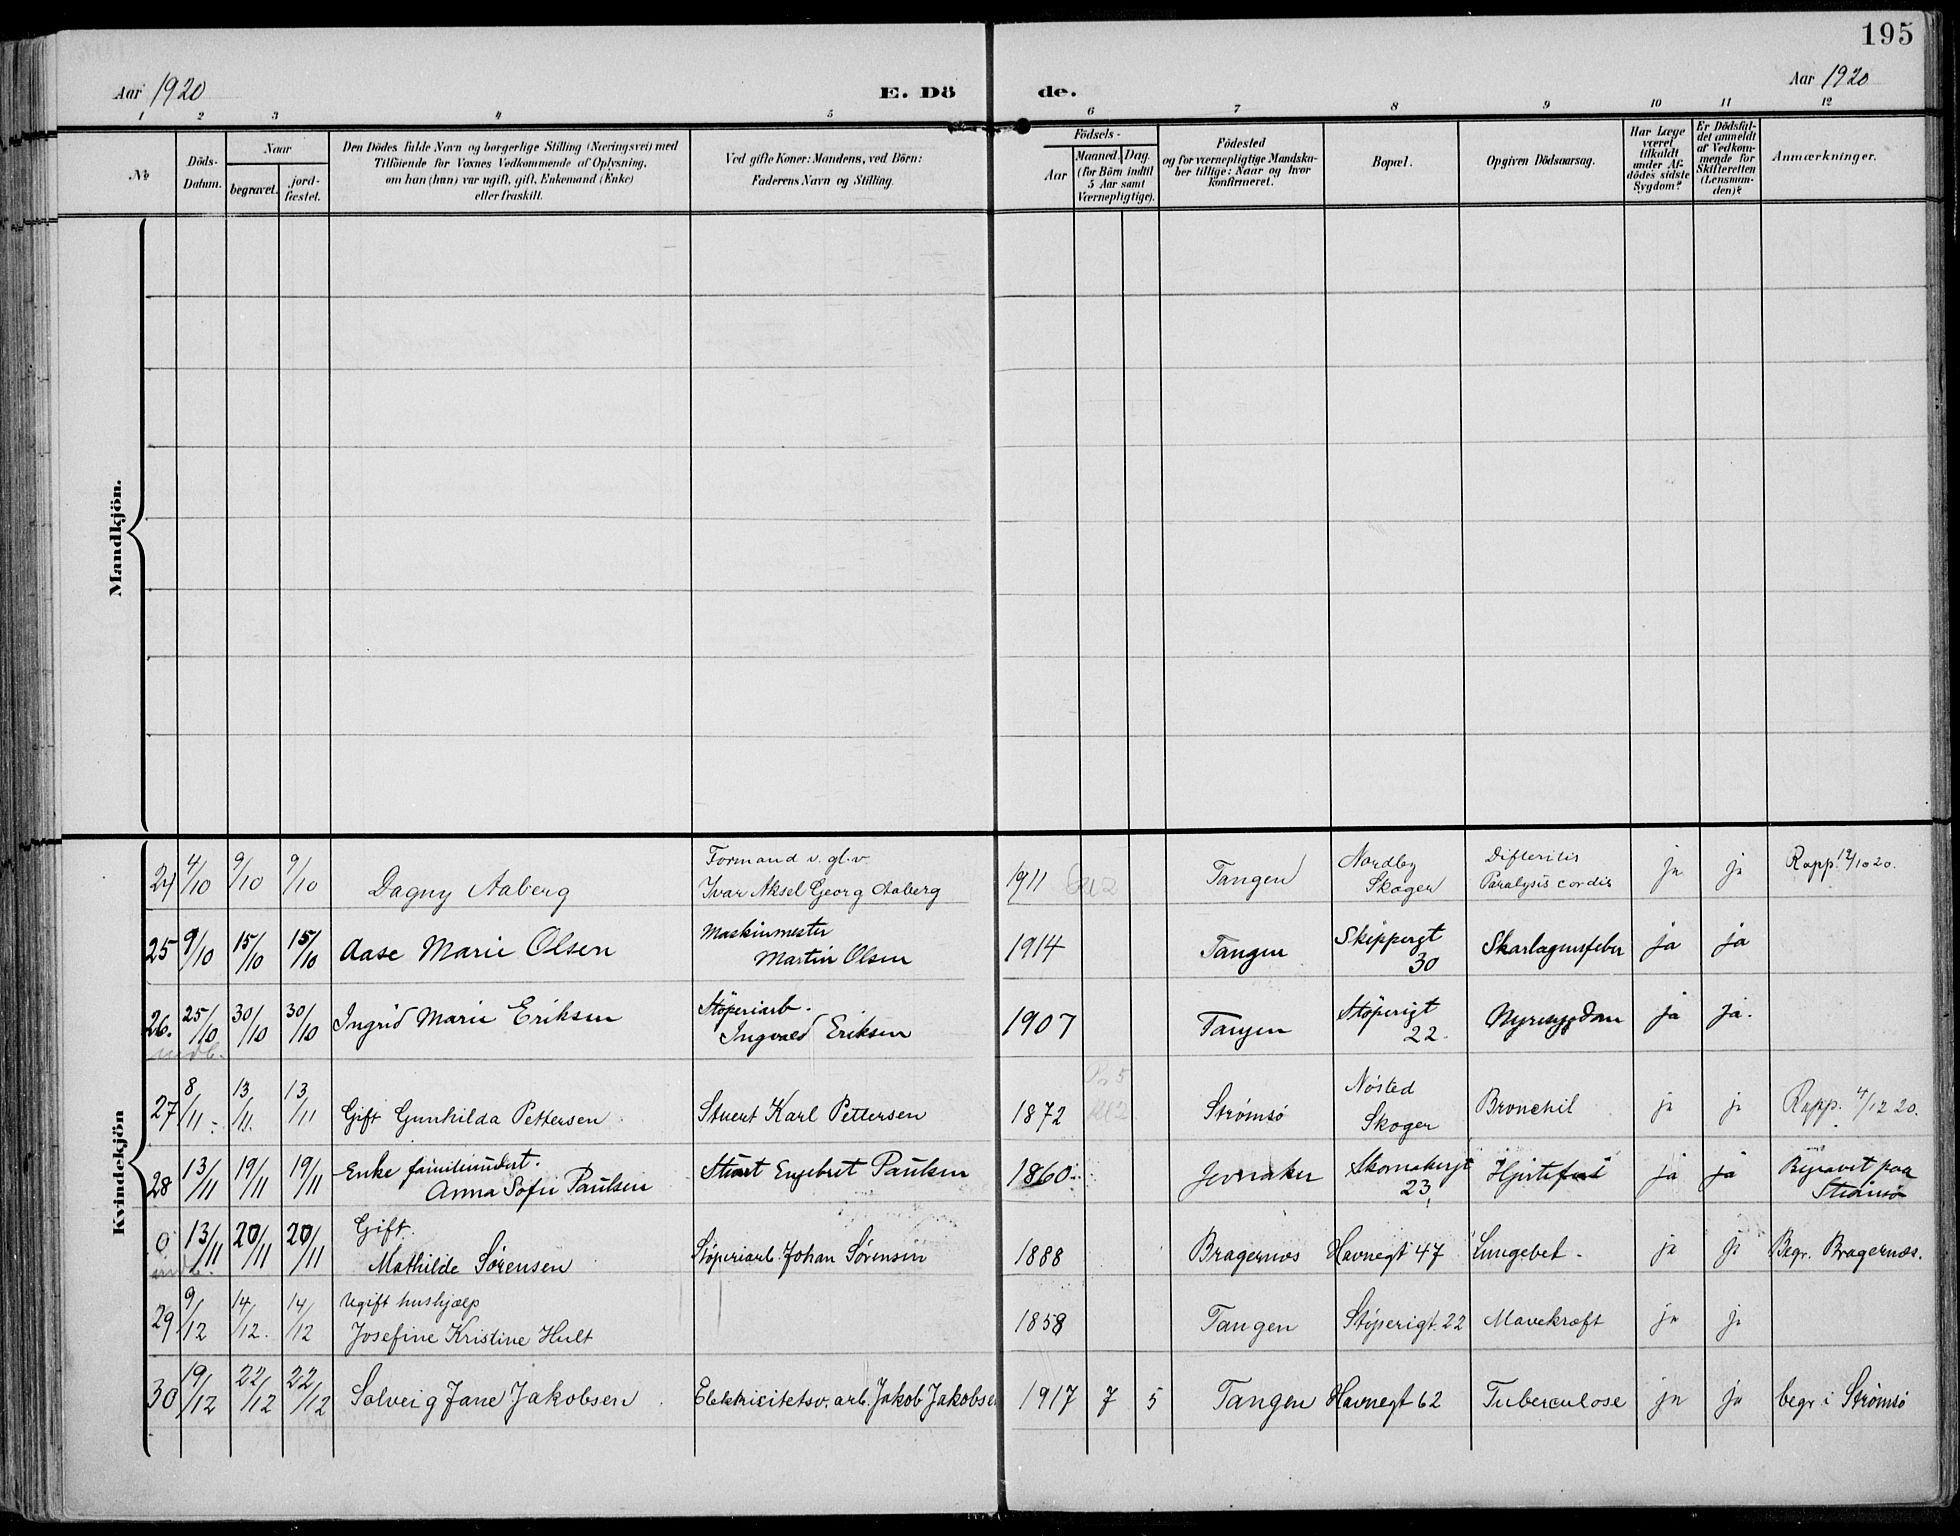 195
Aar 1920
E. Dö de.
Aar 1920
1 2 3 4 5 6 7 8 9 10 11 12
No
Döds-Datum.
Naar
begravet.
jord-fæstet.
Den Dödes fulde Navn og borgerlige Stilling (Næringsvei) med
Tilföiende for Voxnes Vedkommende af Oplysning,
om han (hun) var ugift, gift, Enkemand (Enke)
eller fraskilt.
Ved gifte Koner: Mandens, ved Börn:
Faderens Navn og Stilling.
Födsels-
Aar
Maaned. Dag.
(for Börn indtil
5 Aar samt
Værnepligtige).
Födested
og for værnepligtige Mandska-
ber tillige: Naar og hvor
konfirmeret.
Bopæl.
Opgiven Dödsaarsag.
Har Læge
været
tilkaldt
under Af-
dödes sidste
Sygdom?
Er Dödsfal-
det anmeldt
af Vedkom-
mende for
Skifteretten
(Lensman-
den)?
Anmærkninger.
Mandkjön.
Kvindekjön
24 4/10 9/10 9/10 Dagny Aaberg Formand v. gl.v. Ivar Aksel Georg Aaberg 1911 Tangen Nordby Skoger Difteritis Paralysis cordis ja ja Rapp. 12/10 20.
25 9/10 15/10 15/10 Aase Marie Olsen Maskinmester Martin Olsen 1914 Tangen Skippergt 30 Skarlagensfeber ja ja
26. 25/10 30/10 30/10 Ingrid Marie Eriksen Støperiarb. Ingvald Eriksen 1907 Tangen Støperigt 22. Nyresygdom ja ja.
indb.
27 8/11 13/11 13/11 Gift Gunhilda Pettersen Stuert Karl Pettersen 1872 Strømsø Nøsted Skoger Bronchit ja ja Rapp. 4/12 20.
28 13/11 19/11 19/11 Enke familieunderst. Anna Sofie Paulsen Stuart Engebret Paulsen 1860 Jevnaker Skomakergt 23 Hjertefeil ja ja Begravet paa Strømsø
0 13/11 20/11 20/11 Gift. Mathilde Sørensen Støperiarb. Johan Sørensen 1888 Bragernæs Havnegt 47 Lungebet. ja ja Begr. Bragernæs.
indb.
29 9/12 14/12. 14/12 Ugift hushjælp Josefine Kristine Hult 1858 Tangen Støperigt. 22 Mavekræft ja ja
30 19/12 22/12 22/12 Solveig Jane Jakobsen Elektricitetsv. arb. Jakob Jakobsen 1917 7 5 Tangen Havnegt 62 Tuberculose ja ja begr. i Strømsø